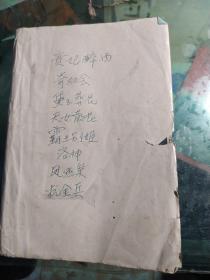 贵妃醉酒
奇双会
黛玉葬花
天女散花
霸王别姬
洛神
凤还巢
抗金兵